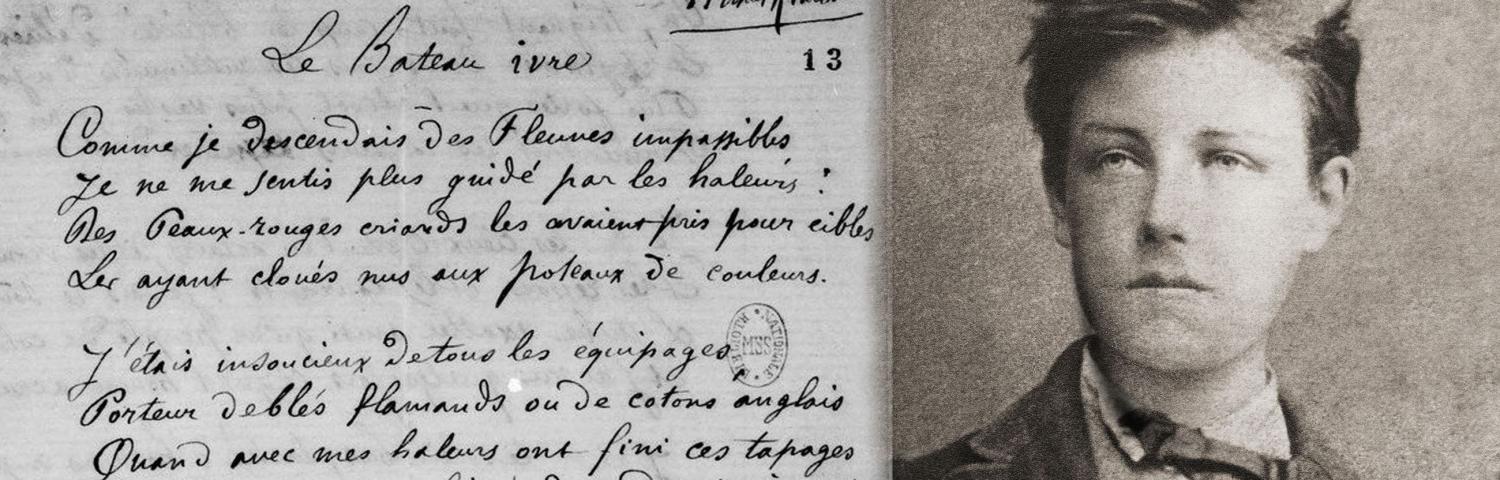 Le Bateau ivre
13
Comme je descendais des Fleuves impassibles
Je ne me sentis plus guidé par les haleurs :
Des Peaux-rouges criards les avaient pris pour cibles
Les ayant cloués nus aux poteaux de couleurs.
J'étais insoucieux de tous les équipages,
Porteur de blés flamands ou de cotons anglais
Quand avec mes haleurs ont fini ces tapages
BIBLIOTH • NATIONALE • MSS